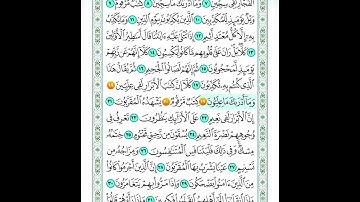 الفجار لفي سجين ٧ وما أدرىك ما سجين ٨ كتب مرقوم ٩
ويل يومئذ للمكذبين ١٠ الذين يكذبون بيوم الدين ١١ وما يكذب
به إلا كل معتد أثيم ١٢ إذا تتلى عليه ءايتنا قال أسطير الأولين
١٣ كلا بل ران على قلوبهم ما كانوا يكسبون ١٤ كلا إنهم عن ربهم
يومئذ لمحجوبون ١٥ ثم إنهم لصالوا الجحيم ١٦ ثم يقال هذا
الذي كنتم به تكذبون ١٧ كلا إن كتب الأبرار لفي عليين ١٨
وما أدرىك ما عليون ١٩ كتب مرقوم ٢٠ يشهده المقربون ٢١
إن الأبرار لفي نعيم ٢٢ على الأرائك ينظرون ٢٣ تعرف في
وجوههم نضرة النعيم ٢٤ يسقون من رحيق مختوم ٢٥ ختمه
مسك وفي ذلك فليتنافس المتنفسون ٢٦ ومزاجه من
تسنيم ٢٧ عينا يشرب بها المقربون ٢٨ إن الذين أجرموا كانوا
من الذين ءامنوا يضحكون ٢٩ وإذا مروا بهم يتغامزون ٣٠